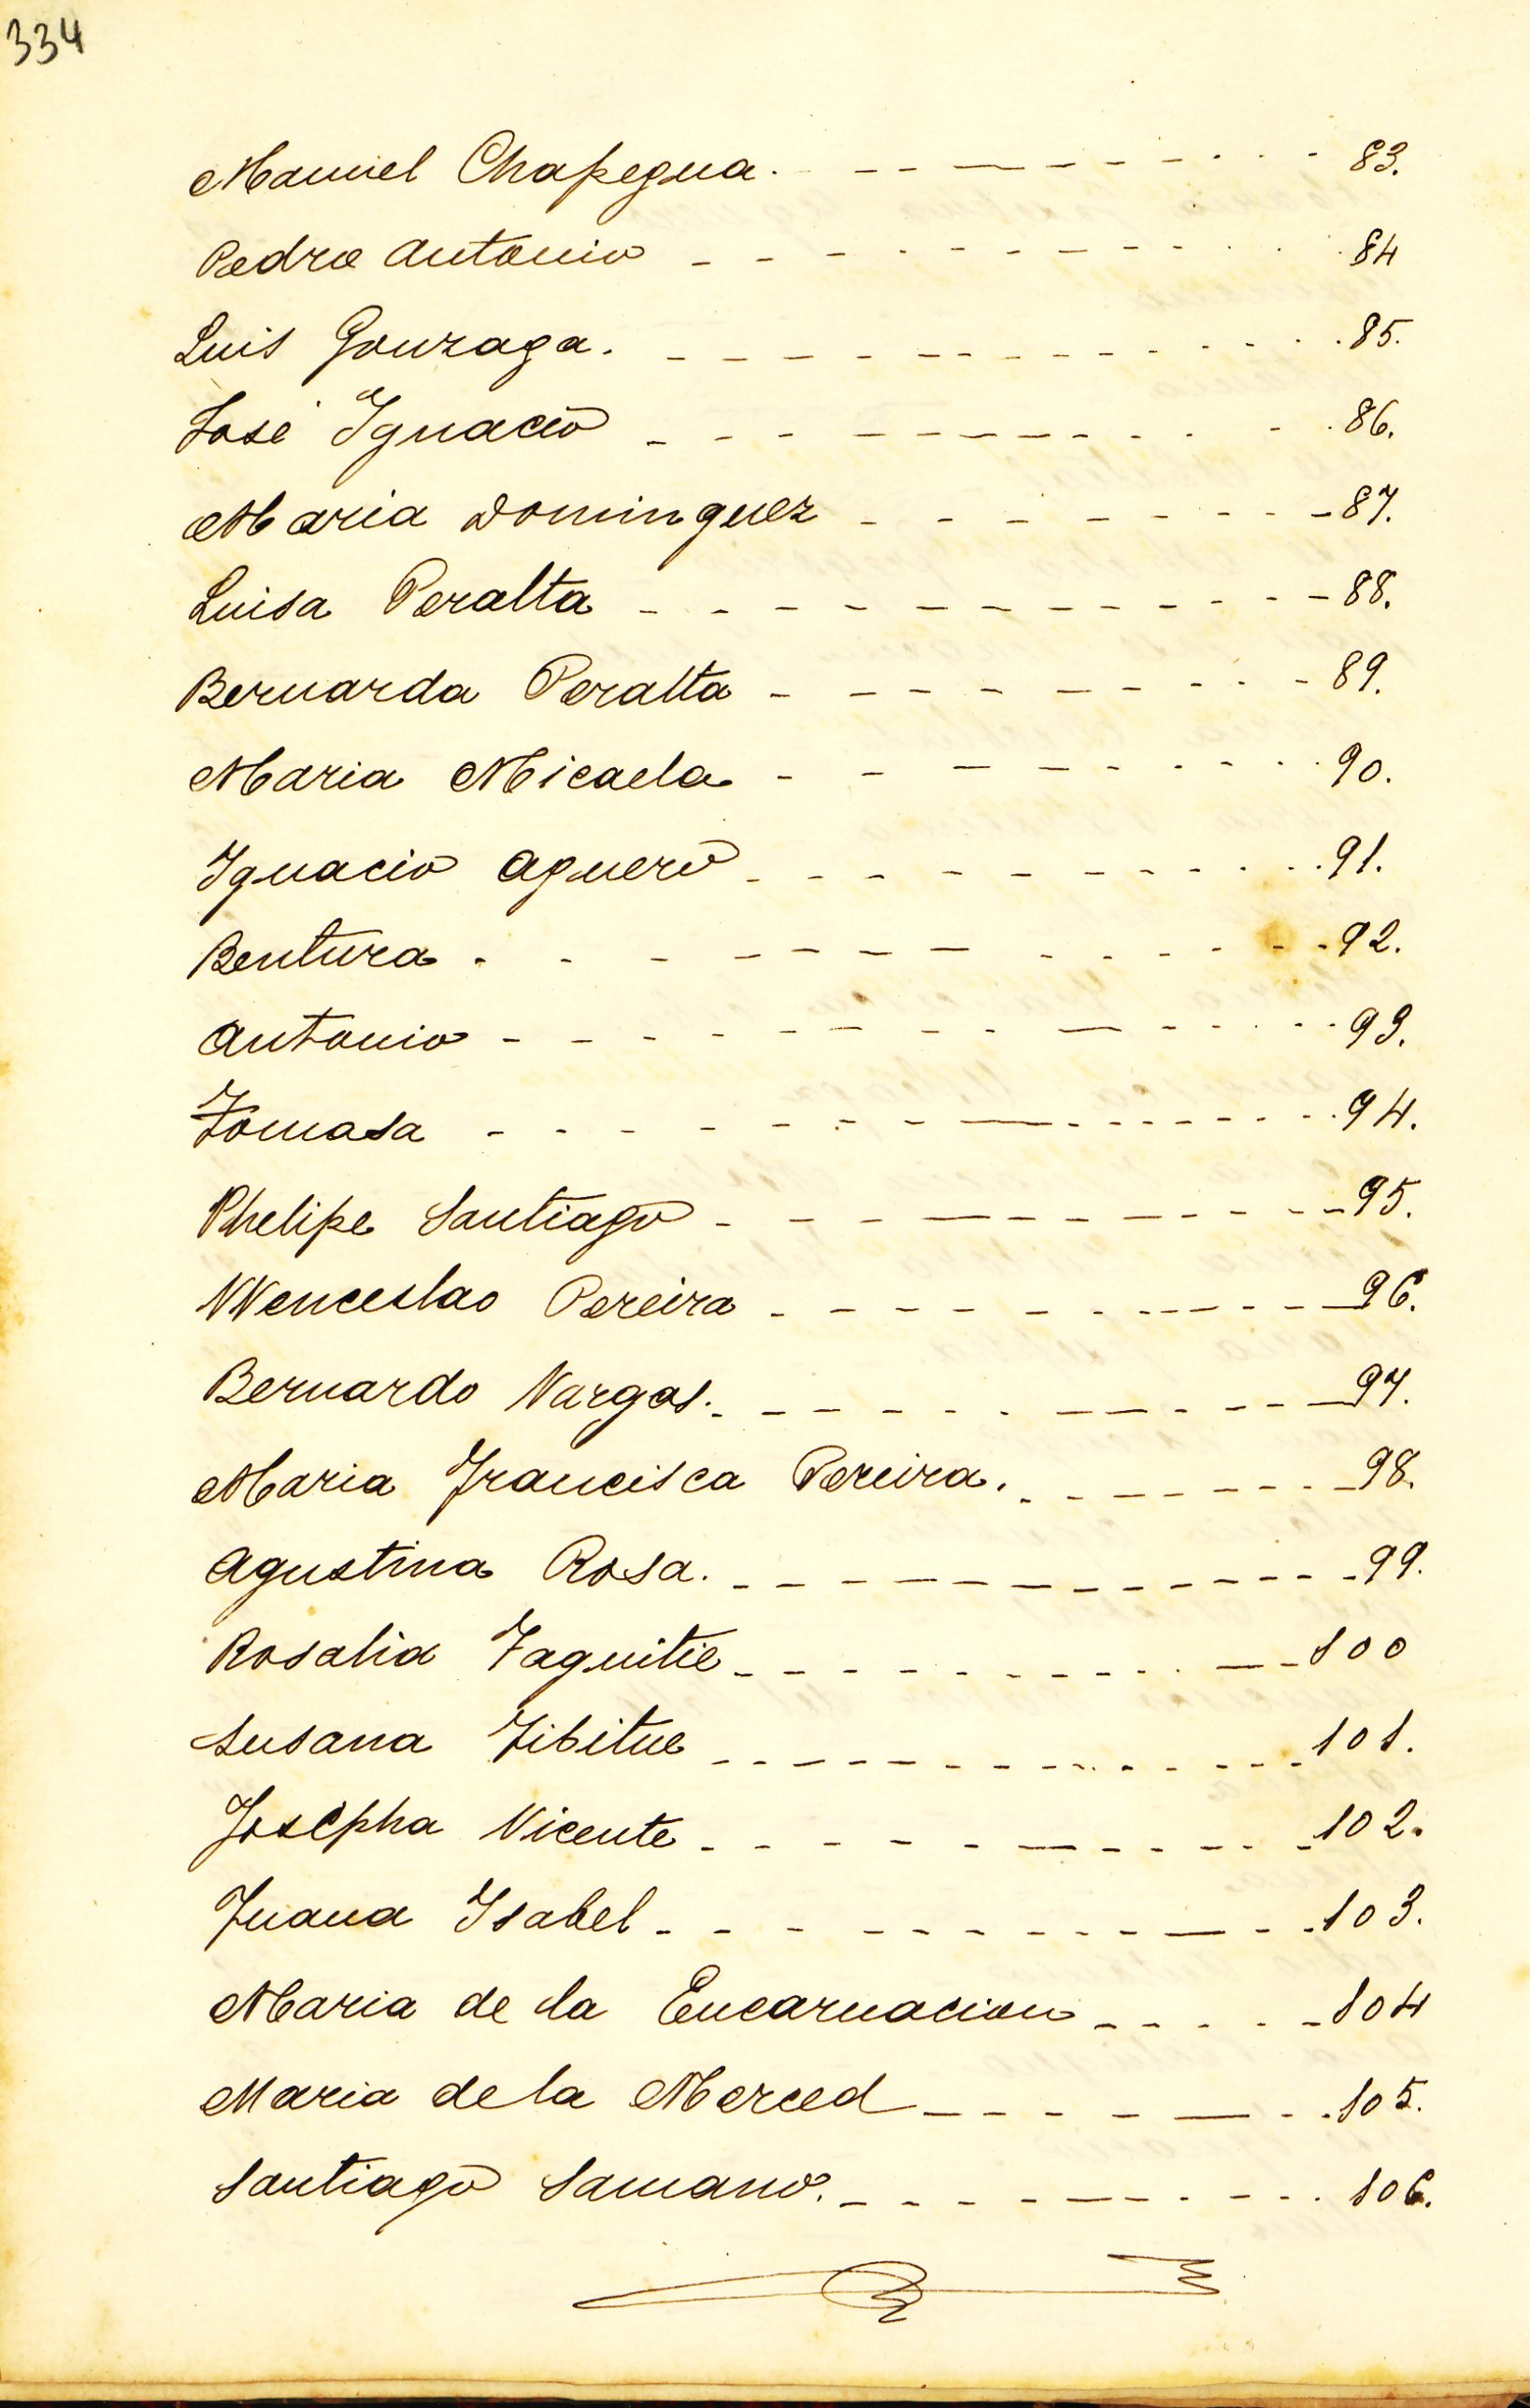 334
Manuel Chapegua. - - - - - - - - - - 83.
Pedro Antonio - - - - - - - - - - 84
Luis Gonzaga. - - - - - - - - - - 85.
José Ygnacio - - - - - - - - - - 86.
Maria Dominguez - - - - - - - - 87.
Luisa Peralta - - - - - - - - - - 88.
Bernarda Peralta - - - - - - - - 89.
Maria Micaela - - - - - - - - 90.
Ygnacio Aguero - - - - - - - - 91.
Bentura - - - - - - - - - - 92.
Antonio - - - - - - - - - - 93.
Tomasa - - - - - - - - - - 94.
Phelipe Santiago - - - - - - - - 95.
Wenceslao Pereira - - - - - - - - 96.
Bernardo Vargas. - - - - - - - - 97.
Maria Francisca Pereira. - - - - - - 98.
Agustina Rosa. - - - - - - - - 99.
Rosalia Taguitie - - - - - - - - 100
Susana Tibitue - - - - - - - - 101.
Josepha Vicente - - - - - - - - 102.
Juana Ysabel - - - - - - - - 103.
Maria de la Encarnacion - - - - - 104
Maria de la Merced - - - - - - 105.
Santiago Samano. - - - - - - - - 106.